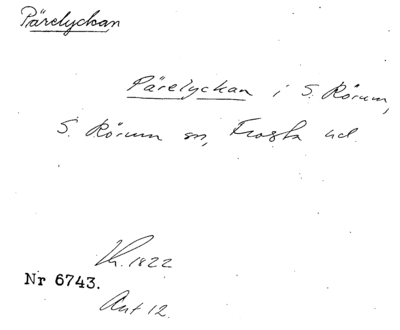 Pärelyckan
Pärelyckan i S. Rörum,
S. Rörum sn, Frosta hd.
Lh. 1822
Nr 6743.
Akt 12.